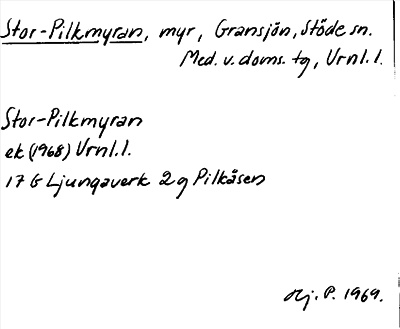 Stor-Pilkmyran, myr, Gransjön, Stöde sn.
Med. v. doms. tg, Urnl. l.
Stor-Pilkmyran
ek (1968) Urnl. l.
17 G Ljungaverk 2 g Pilkåsen
Hj. P. 1969.